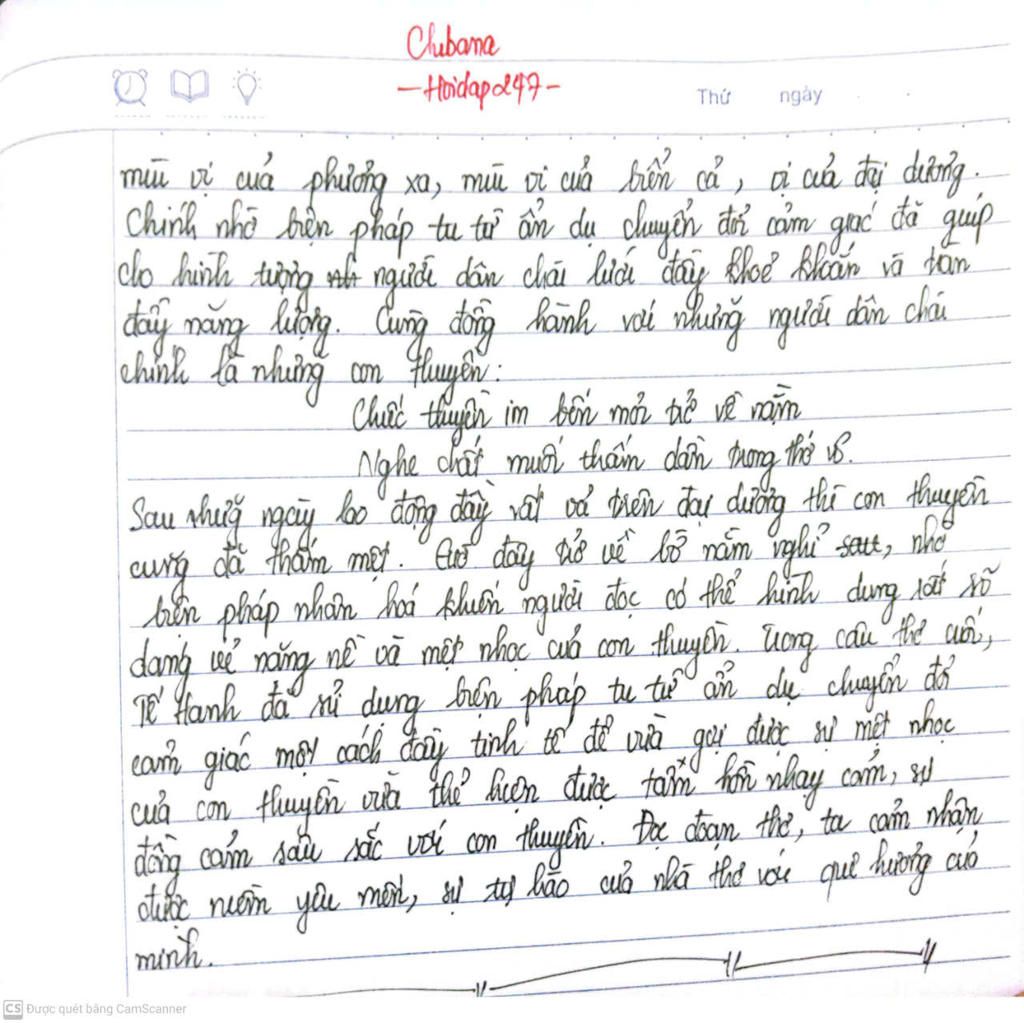 Clubana
-Hoidap247-
Thứ ngày
mùi vị của phương xa, mùi vị của biển cả, vị của đại dương.
Chính nhờ biện pháp tu từ ẩn dụ chuyển đổi cảm giác đã giúp
cho hình tượng người dân chài lưới đầy khoẻ khoắn và tràn
đầy năng lượng. Cùng đồng hành với những người dân chài
chính là những con thuyền:
Chiếc thuyền im bến mỏi trở về nằm
Nghe chất muối thấm dần trong thớ vỏ.
Sau những ngày lao động đầy vất vả trên đại dương thì con thuyền
cũng đã thấm mệt. đây trở về bờ nằm nghỉ, nhờ
biện pháp nhân hoá khiến người đọc có thể hình dung rất rõ
dáng vẻ nặng nề và mệt nhọc của con thuyền. Trong câu thơ cuối,
Tế Hanh đã sử dụng biện pháp tu từ ẩn dụ chuyển đổi
cảm giác một cách đầy tinh tế để vừa gợi được sự mệt nhọc
của con thuyền vừa thể hiện được tâm hồn nhạy cảm, sự
đồng cảm sâu sắc với con thuyền. Đọc đoạn thơ, ta cảm nhận
được niềm yêu mến, sự tự hào của nhà thơ với quê hương của
mình.
CS Được quét bằng CamScanner